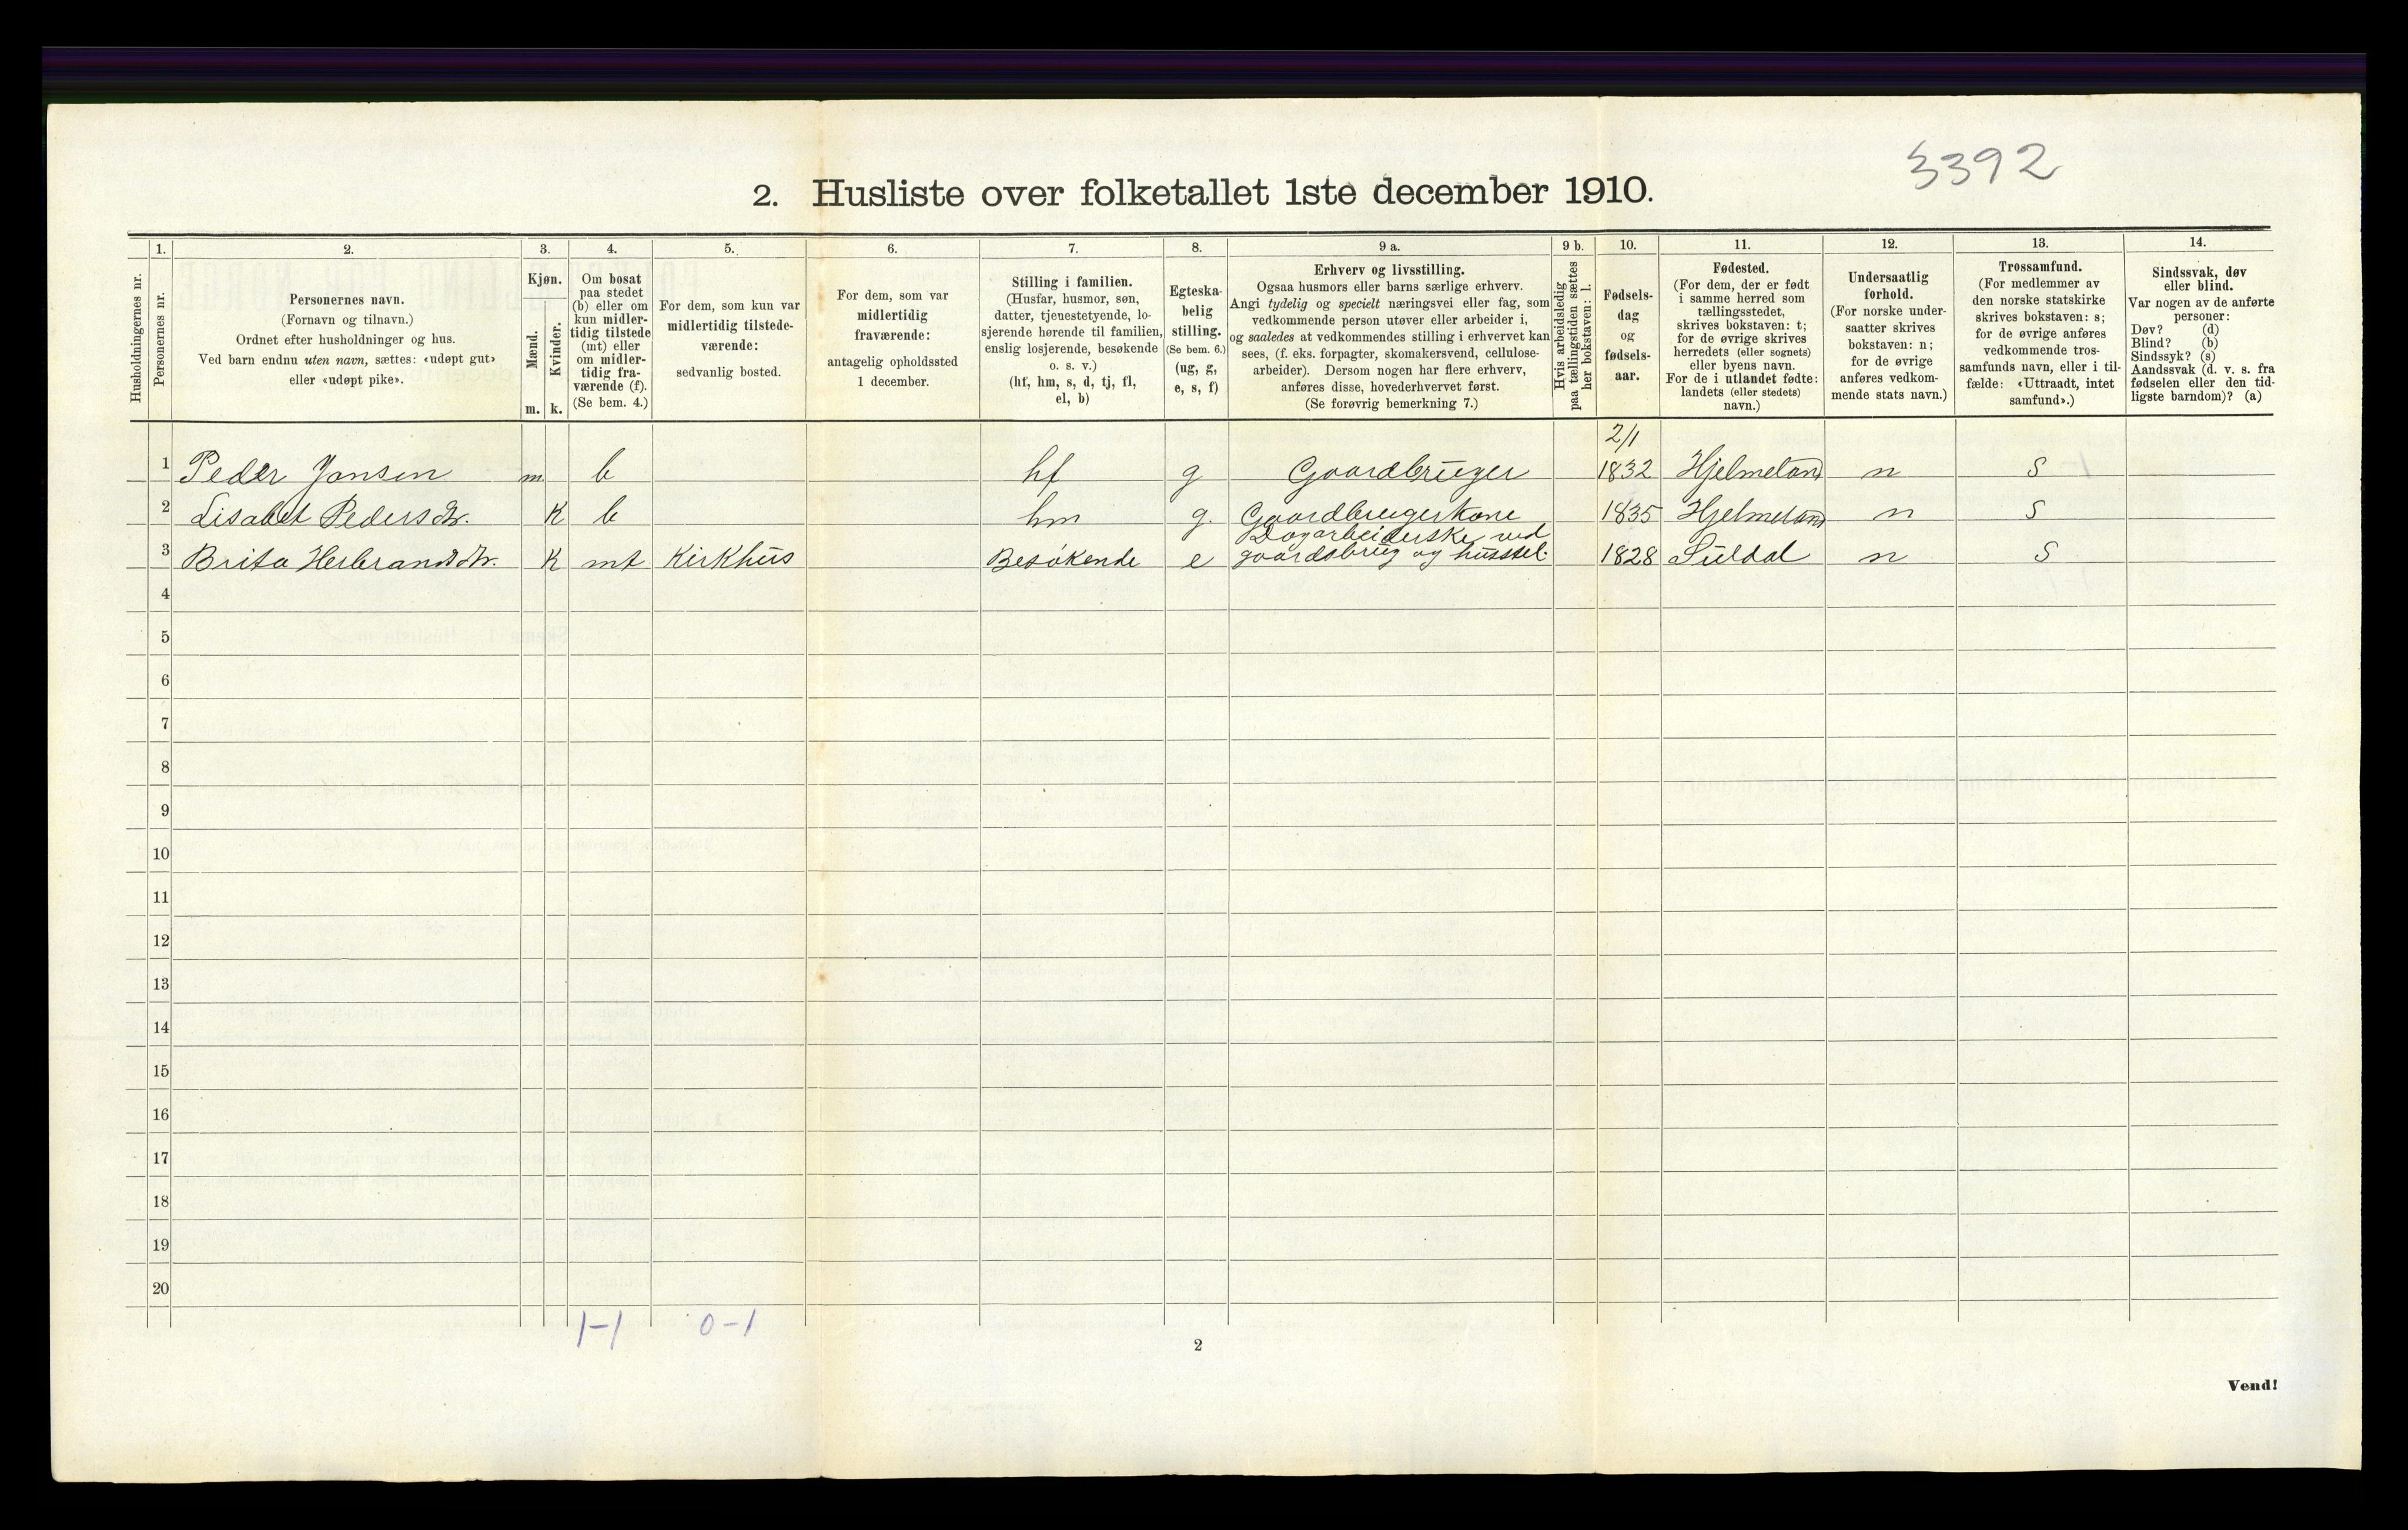 3392
2. Husliste over folketallet 1ste december 1910.
Husholdningernes nr.
1.
Personernes nr.
2.
Personernes navn.
(Fornavn og tilnavn.)
Ordnet efter husholdninger og hus.
Ved barn endnu uten navn, sættes: «udøpt gut»
eller «udøpt pike».
3.
Kjøn.
Mænd.
Kvinder.
m. k.
4.
Om bosat
paa stedet
(b) eller om
kun midler-
tidig tilstede
(mt) eller
om midler-
tidig fra-
værende (f).
(Se bem. 4.)
5.
For dem, som kun var
midlertidig tilstede-
værende:
sedvanlig bosted.
6.
For dem, som var
midlertidig
fraværende:
antagelig opholdssted
1 december.
7.
Stilling i familien.
(Husfar, husmor, søn,
datter, tjenestetyende, lo-
sjerende hørende til familien,
enslig losjerende, besøkende
o. s. v.)
(hf, hm, s, d, tj, fl,
el, b)
8.
Egteska-
belig
stilling.
(Se bem. 6.)
(ug, g,
e, s, f)
9 a.
Erhverv og livsstilling.
Ogsaa husmors eller barns særlige erhverv.
Angi tydelig og specielt næringsvei eller fag, som
vedkommende person utøver eller arbeider i,
og saaledes at vedkommendes stilling i erhvervet kan
sees, (f. eks. forpagter, skomakersvend, cellulose-
arbeider). Dersom nogen har flere erhverv,
anføres disse, hovederhvervet først.
(Se forøvrig bemerkning 7.)
9 b.
Hvis arbeidsledig
paa tællingstiden sættes
her bokstaven: l.
10.
Fødsels-
dag
og
fødsels-
aar.
11.
Fødested.
(For dem, der er født
i samme herred som
tællingsstedet,
skrives bokstaven: t;
for de øvrige skrives
herredets (eller sognets)
eller byens navn.
For de i utlandet fødte:
landets (eller stedets)
navn.)
12.
Undersaatlig
forhold.
(For norske under-
saatter skrives
bokstaven: n;
for de øvrige
anføres vedkom-
mende stats navn.)
13.
Trossamfund.
(For medlemmer av
den norske statskirke
skrives bokstaven: s;
for de øvrige anføres
vedkommende tros-
samfunds navn, eller i til-
fælde: «Uttraadt, intet
samfund».)
14.
Sindssvak, døv
eller blind.
Var nogen av de anførte
personer:
Døv? (d)
Blind? (b)
Sindssyk? (s)
Aandssvak (d. v. s. fra
fødselen eller den tid-
ligste barndom)? (a)
2/1
1 Peder Jonsen m b hf g Gaardbruger 1832 Hjelmeland n S
2 Lisabet Pedersdtr. K b hm g. Gaardbrugerkone 1835 Hjelmeland n S
Dagarbeiderske ved
3 Brita Herbrandsdtr. K mt Kirkhus Besøkende e gaardsbrug og husstel. 1828 Suldal n S
4
5
6
7
8
9
10
11
12
13
14
15
16
17
18
19
20
1-1 0-1
2
Vend!